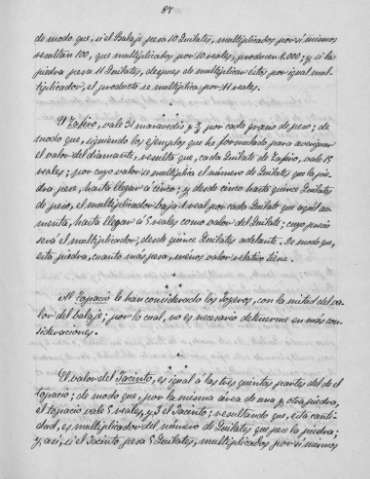 84
de modo que, si el Balaje pesa 10 Quilates, multiplicados por sí mismos
resultan 100, que multiplicados por 10 reales, producen 1.000; y si la
piedra pesa 11 Quilates, despues de multiplicar éstos por igual mul-
tiplicador, el producto se multiplica por 11 reales.
El Zafiro, vale 31 maravedis y 1/2 por cada grano de peso; de
modo que, siguiendo los ejemplos que he formulado para averiguar
el valor del diamante, resulta que, cada Quilate de Zafiro, vale 15
reales; por cuyo valor se multiplica el número de Quilates que la pie-
dra, pese, hasta llegar a cinco; y desde cinco hasta quince Quilates
de peso, el multiplicador baja 1 real por cada Quilate que aquél au-
menta, hasta llegar a 5 reales como valor del Quilate; cuyo precio
será el multiplicador, desde quince Quilates adelante. De modo que,
esta piedra, cuanto más pesa, menos valor relativo tiene.
Al topacio le han considerado los Joyeros, con la mitad del va-
lor del balaje; por lo cual, no es necesario detenerme en más con-
sideraciones.
El valor del Jacinto, es igual á las tres quintas partes del de el
topacio; de modo que, por la misma área de una y otra piedra,
el topacio vale 5 reales, y 3 el Jacinto; resultando que, esta canti-
dad, es multiplicador del número de Quilates que pese la piedra;
y, así, si el Jacinto pesa 5 Quilates, multiplicados por sí mismos